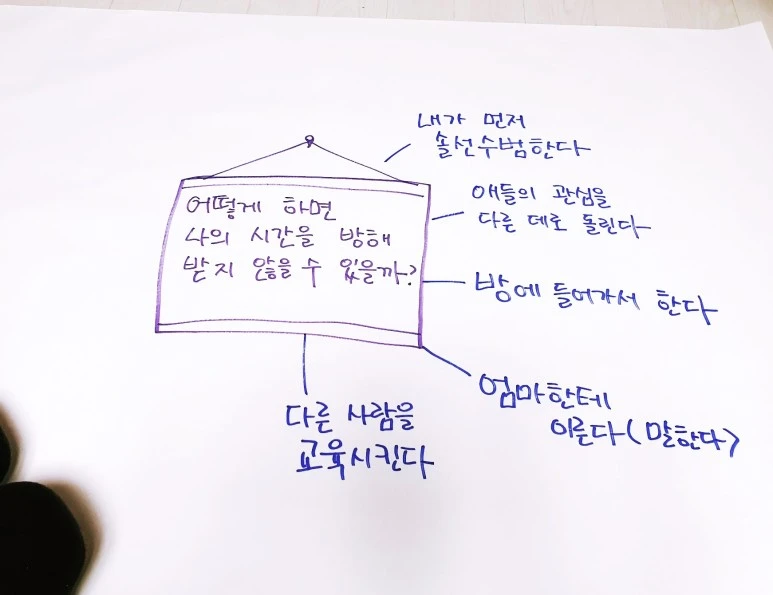 어떻게 하면
나의 시간을 방해
받지 않을 수 있을까?
내가 먼저
솔선수범한다
애들의 관심을
다른 데로 돌린다
방에 들어가서 한다
엄마한테
이른다(말한다)
다른 사람을
교육시킨다